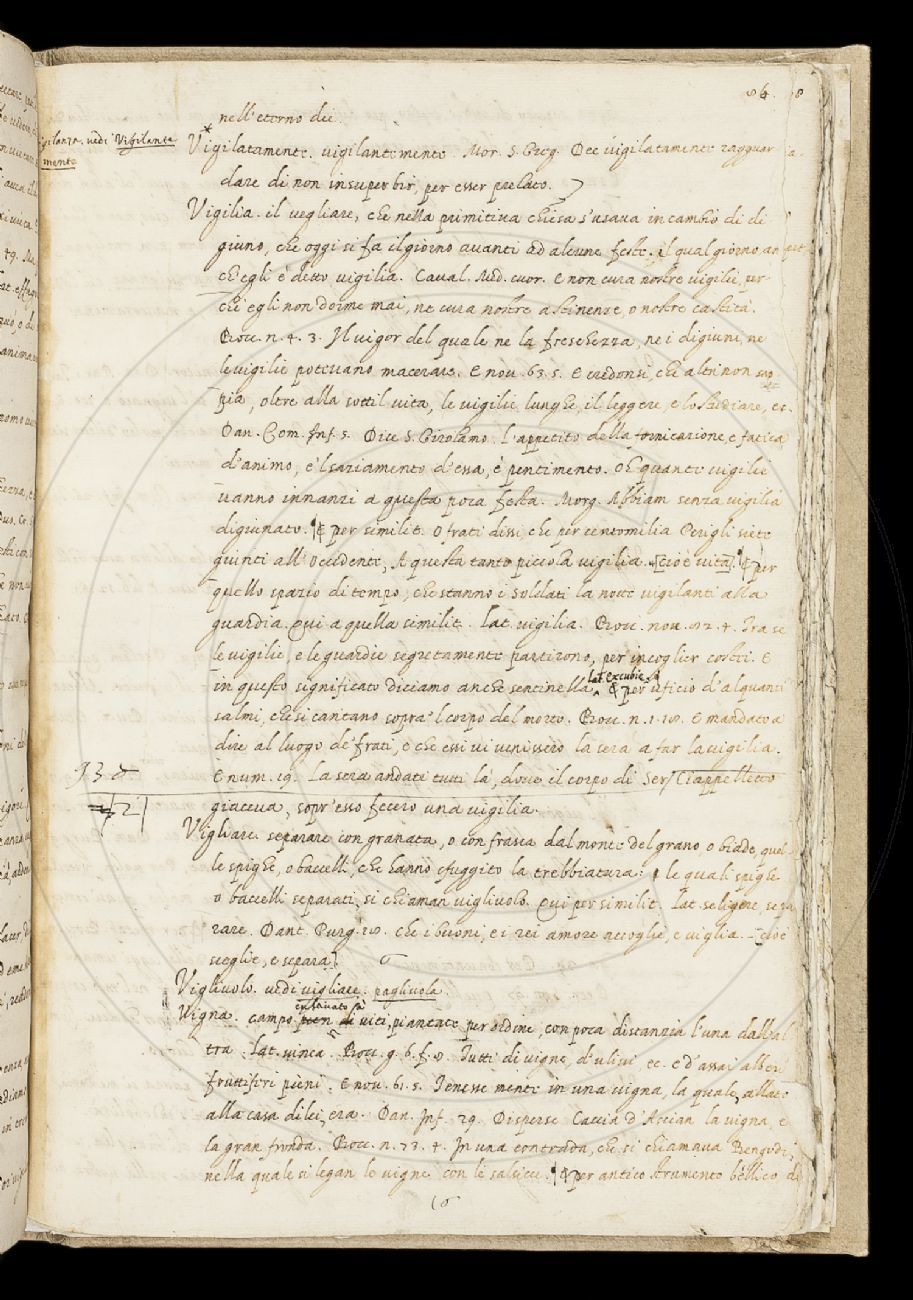 84. 78
nell'eterno die.
Vigilanza. vedi Vigilante
mente
Vigilatamente. vigilantemente. Mor. S. Greg. Dee vigilatamente ragguar
dare di non insuperbir, per esser prelato.
Vigilia. il vegliare, che nella primitiva chiesa s'usava in cambio di di
giuno, che oggi si fa il giorno avanti ad alcune feste. il qual giorno an
ch'egli è detto vigilia. Caval. Med. cuor. E non cura nostre vigilie, per
ch'egli non dorme mai, ne cura nostre astinenze, o nostre castità.
Bocc. n. 4. 3. Il vigor del quale ne la freschezza, ne i digiuni, ne
le vigilie potevano macerare. E nov. 63. 5. E credonsi, che altri non
pia, oltre alla sottil vita, le vigilie lunghe, il leggere, e lo studiare, ec.
Dan. Com. Inf. 5. Dice S. Girolamo. l'appetito della fornicazione, è fatica
d'animo, e 'l saziamento d'essa, è pentimento. Oh quante vigilie
vanno innanzi a questa poca festa. Morg. Abbiam senza vigilia
digiunato. E per similit. O frati dissi, che per centomilia Perigli siete
giunti all'occidente, A questa tanto picciola vigilia. [cioè vita]. E per
quello spazio di tempo, che stanno i soldati la notte vigilanti alla
guardia. qui a quella similit. lat. vigilia. Bocc. nov. 82. 4. Tra se
le vigilie, e le guardie segretamente partirono, per incoglier costei. E
in questo significato diciamo anche sentinella lat. excubie. E per uficio d'alquanti
salmi, che si cantano sopra 'l corpo del morto. Bocc. n. 1. 18. E mandato a
dire al luogo de' frati, e che essi vi venissero la sera a far la vigilia.
E num. 19. La sera andati tutti là, dove il corpo di Ser Ciappelletto
giaceva, sopr'esso fecero una vigilia.
Vigliare. separare con granata, o con frasca dal monte del grano o biade, quel
le spighe, o baccelli, che hanno sfuggito la trebbiatura: le quali spighe
o baccelli separati, si chiaman vigliuolo. qui per similit. lat. seligere, sepa
rare. Dant. Purg. 18. che i buoni, e i rei amore accoglie, e viglia. [cioè
sceglie, e separa].
Vigliuolo. vedi vigliare. pagliuola.
Vigna. campo coltivato a viti, piantate per ordine, con poca distanzia l'una dall'al
tra. lat. vinea. Bocc. g. 6. f. 8. Tutti di vigne, d'ulivi ec. e d'assai alberi
fruttiferi pieni. E nov. 61. 5. Tenesse mente in una vigna, la quale allato
alla casa di lei era. Dan. Inf. 29. Disperse Caccia d'Ascian la vigna, e
la gran fronda. Bocc. n. 73. 4. In una contrada, che si chiamava Bengodi,
nella quale si legan le vigne con le salsicce. E per antico strumento bellico da